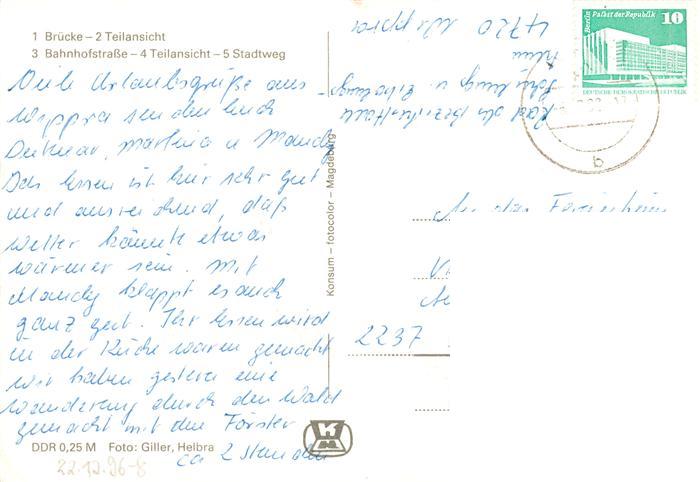 1 Brücke – 2 Teilansicht
3 Bahnhofstraße – 4 Teilansicht – 5 Stadtweg
Viele Urlaubsgrüße aus
Wippra senden Euch
Dietmar, Martina u Mandy
Das Essen ist hier sehr gut
und ausreichend, daß
Wetter könnte etwas
wärmer sein. Mit
Mandy klappt es auch
ganz gut. Ihr Essen wird
in der Küche warm gemacht
wir haben gestern eine
Wanderung durch den Wald
gemacht mit den Förster
ca 2 Stunden
DDR 0,25 M Foto: Giller, Helbra
22.12.96-8
Konsum – fotocolor – Magdeburg
Rat des Bezirkes Halle
Schulung u Erholungs-
heim
4720 Wippra
Berlin Palast der Republik 10
DEUTSCHE DEMOKRATISCHE REPUBLIK
b
An das Ferienheim
2237